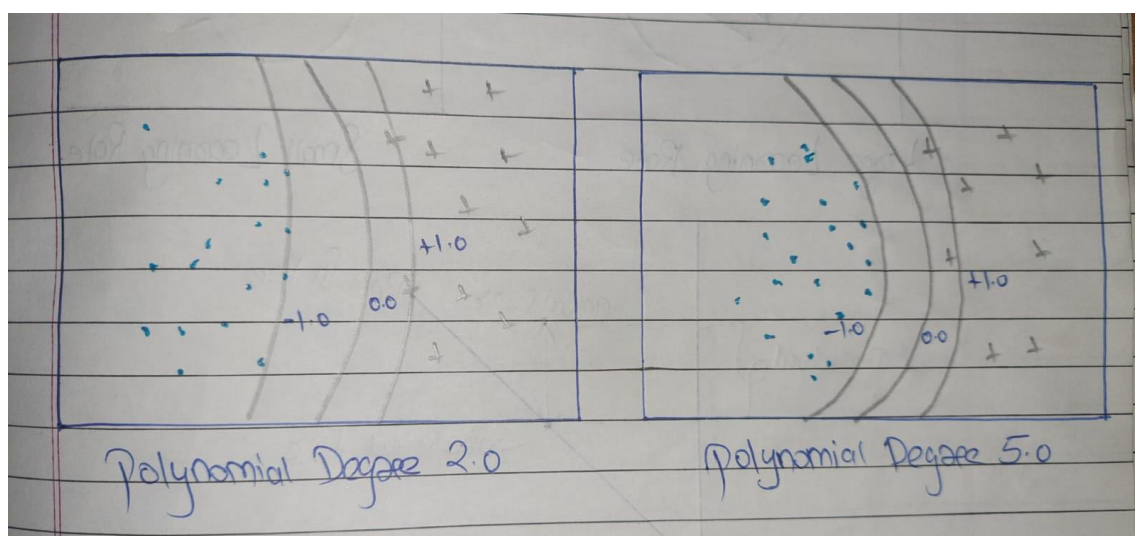 +1.0
0.0
-1.0
Polynomial Degree 2.0
+1.0
-1.0
0.0
Polynomial Degree 5.0